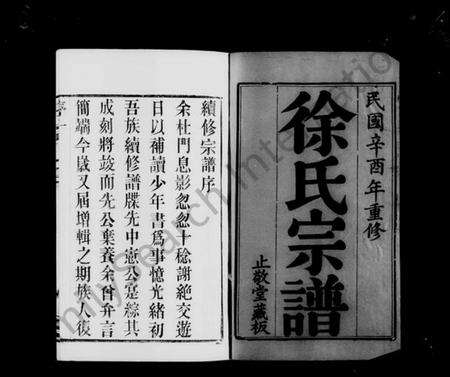 民國辛酉年重修
徐氏宗譜
止敬堂藏板
續修宗譜序
余杜門息影忽忽十稔謝絶交遊
日以補讀少年書爲事憶光緒初
吾族續修譜牒先申愈公寔綜其
成刻將竣而先公棄養余曾弁言
簡端今歲又届增輯之期族人復